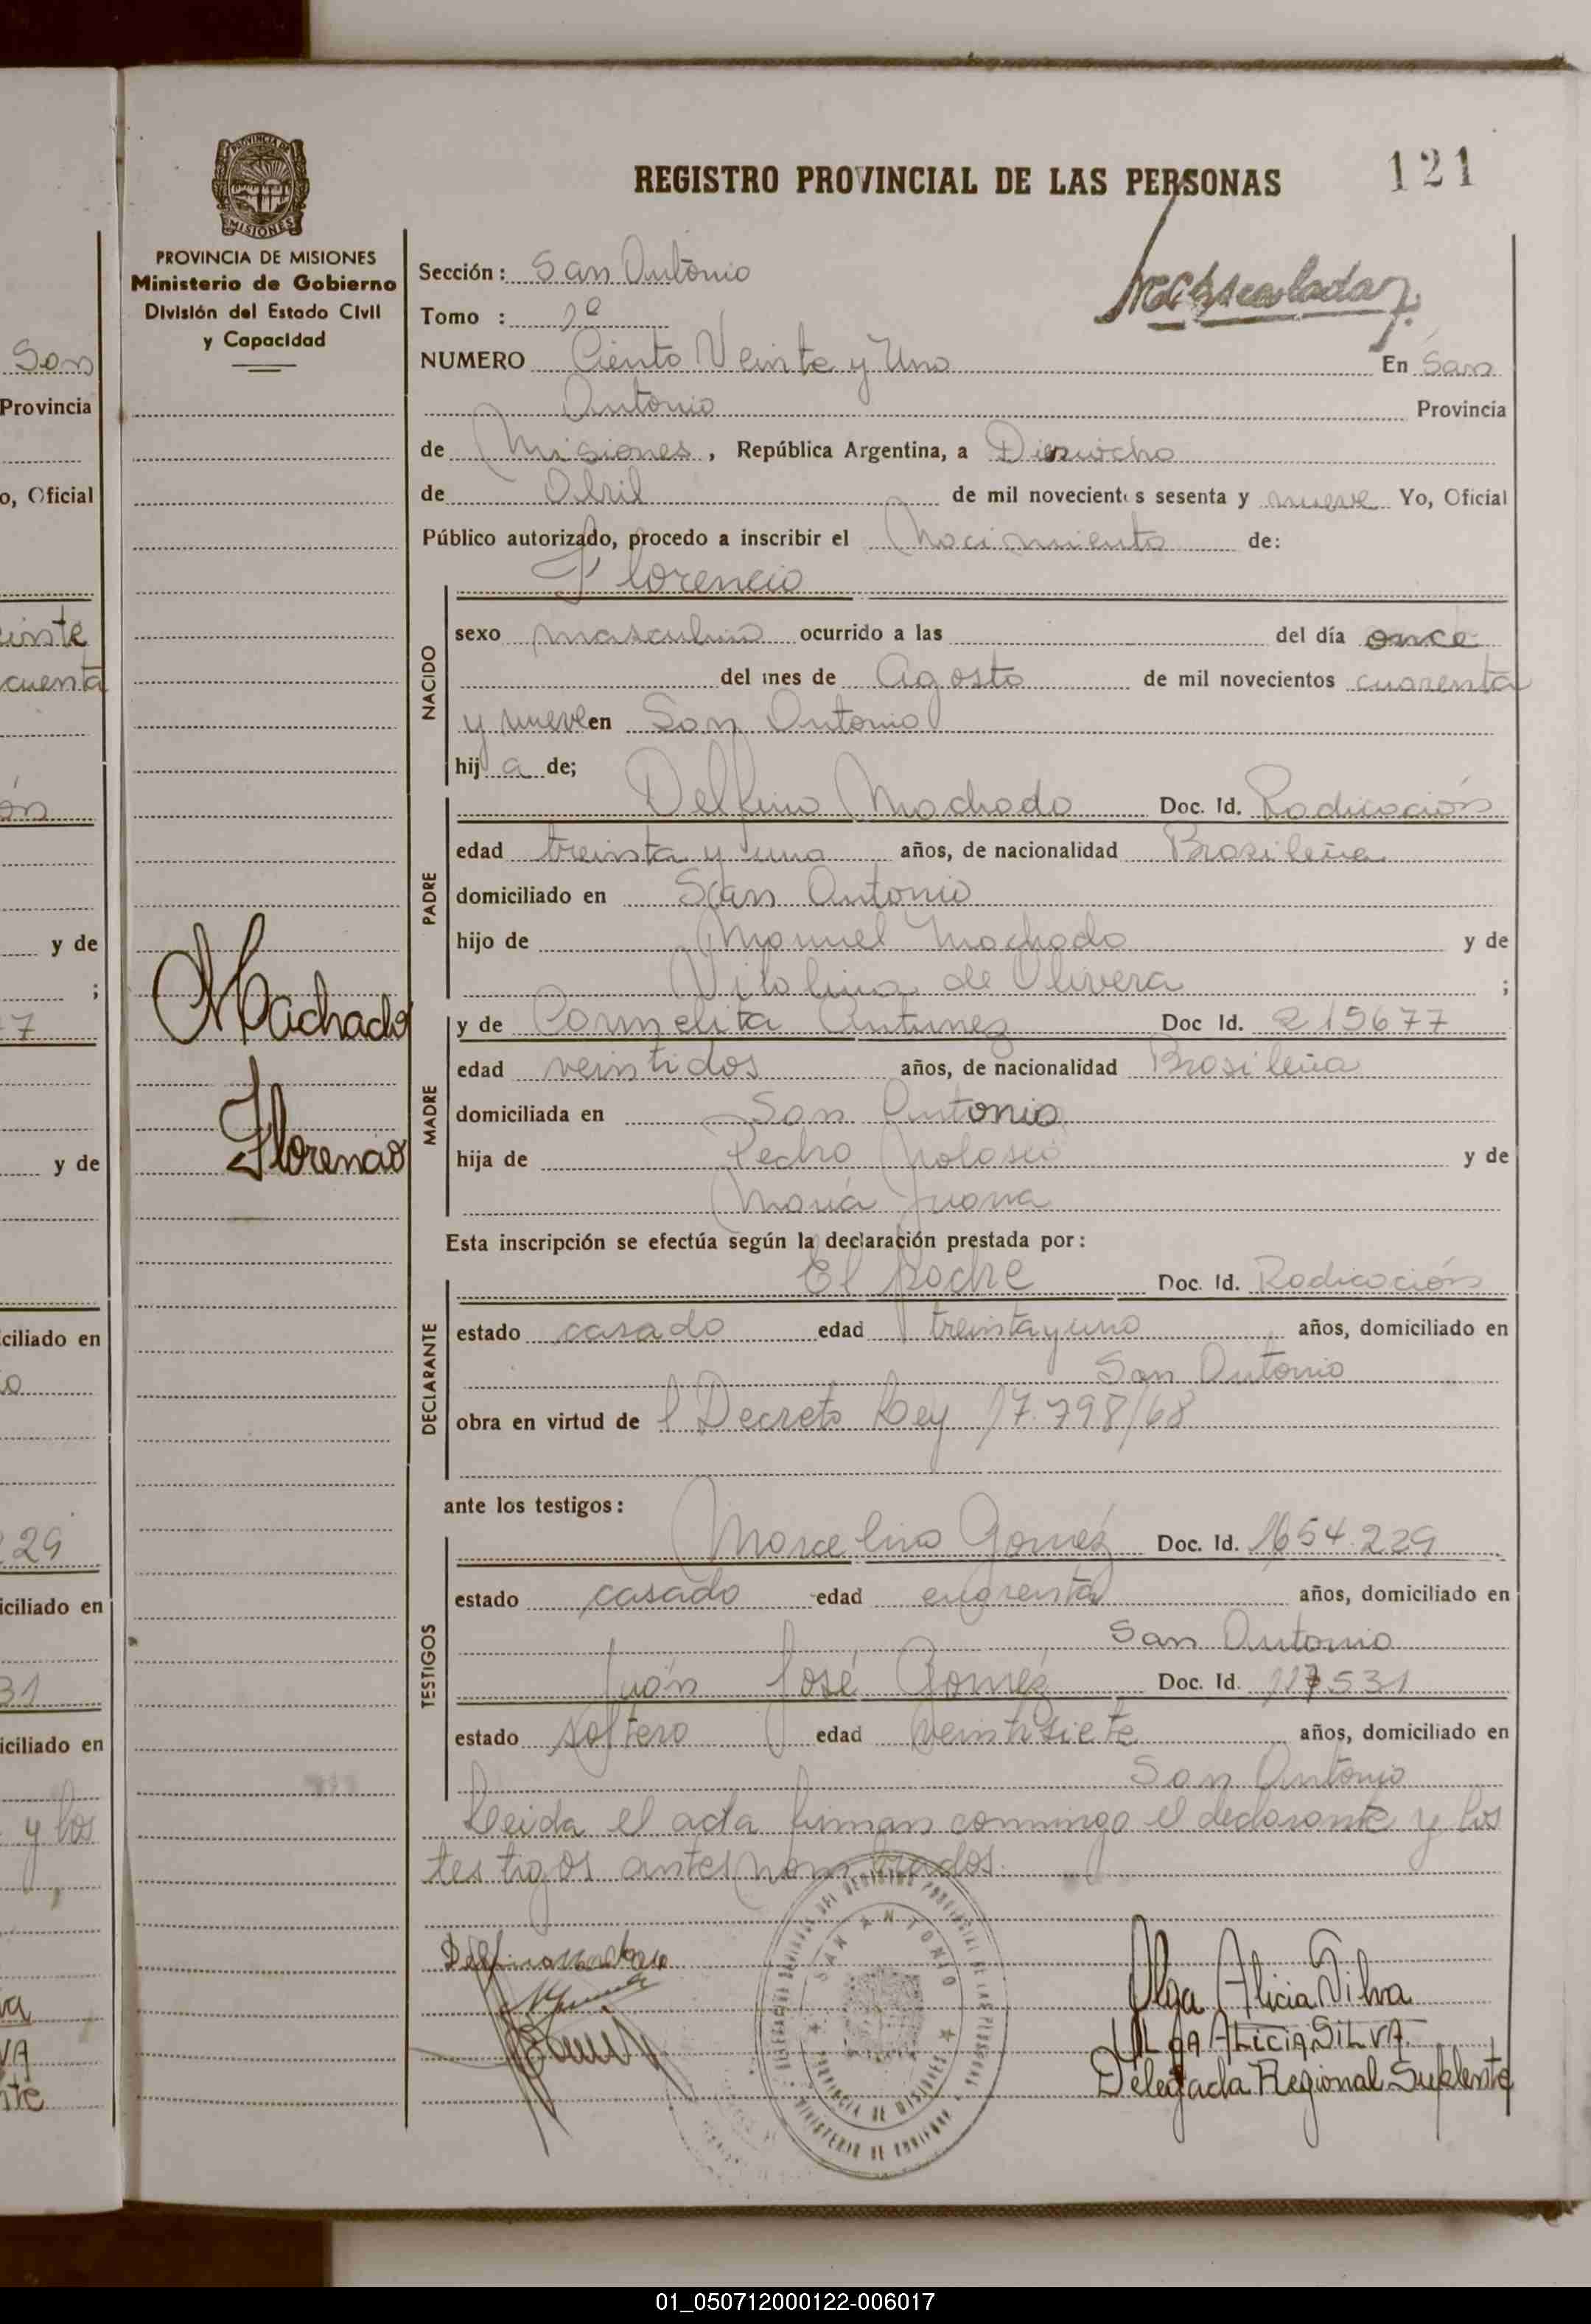 121
REGISTRO PROVINCIAL DE LAS PERSONAS
PROVINCIA DE MISIONES
Ministerio de Gobierno
División del Estado Civil
y Capacidad
Sección: San Antonio
Tomo : 1º
NUMERO Ciento Veinte y Uno En San
Antonio Provincia
de Misiones, República Argentina, a Dieciocho
de Abril de mil novecientos sesenta y nueve Yo, Oficial
Público autorizado, procedo a inscribir el Nacimiento de:
Florencio
NACIDO
sexo masculino ocurrido a las del día once
del mes de Agosto de mil novecientos cuarenta
y nueve en San Antonio
hij a de;
PADRE
Delfino Machado Doc. Id. Radicación
edad treinta y uno años, de nacionalidad Brasileña
domiciliado en San Antonio
hijo de Manuel Machado y de
de Olivera ;
Machado
Florencio
MADRE
y de Carmelita Antunez Doc Id. 215677
edad veintidos años, de nacionalidad Brasileña
domiciliada en San Antonio
hija de Pedro y de
María Juana
Esta inscripción se efectúa según la declaración prestada por:
DECLARANTE
El Padre Doc. Id. Radicación
estado casado edad treinta y uno años, domiciliado en
San Antonio
obra en virtud de l Decreto Ley 17.798/68
ante los testigos:
TESTIGOS
Marcelino Goméz Doc. Id. 1654.229
estado casado edad años, domiciliado en
San Antonio
Juán José Goméz Doc. Id. 117531
estado soltero edad veintisiete años, domiciliado en
San Antonio
Leida el acta firman conmingo el declarante y los
testigos antes nombrados.
SAN ANTONIO
PROVINCIA DE MISIONES
Olga Alicia Silva
OLGA ALICIA SILVA
Delegada Regional Suplente
Son
Provincia
o, Oficial
einte
cuenta
ón
y de
;
7
y de
ciliado en
o
29
iciliado en
31
iciliado en
y los
va
VA
nte
01_050712000122-006017